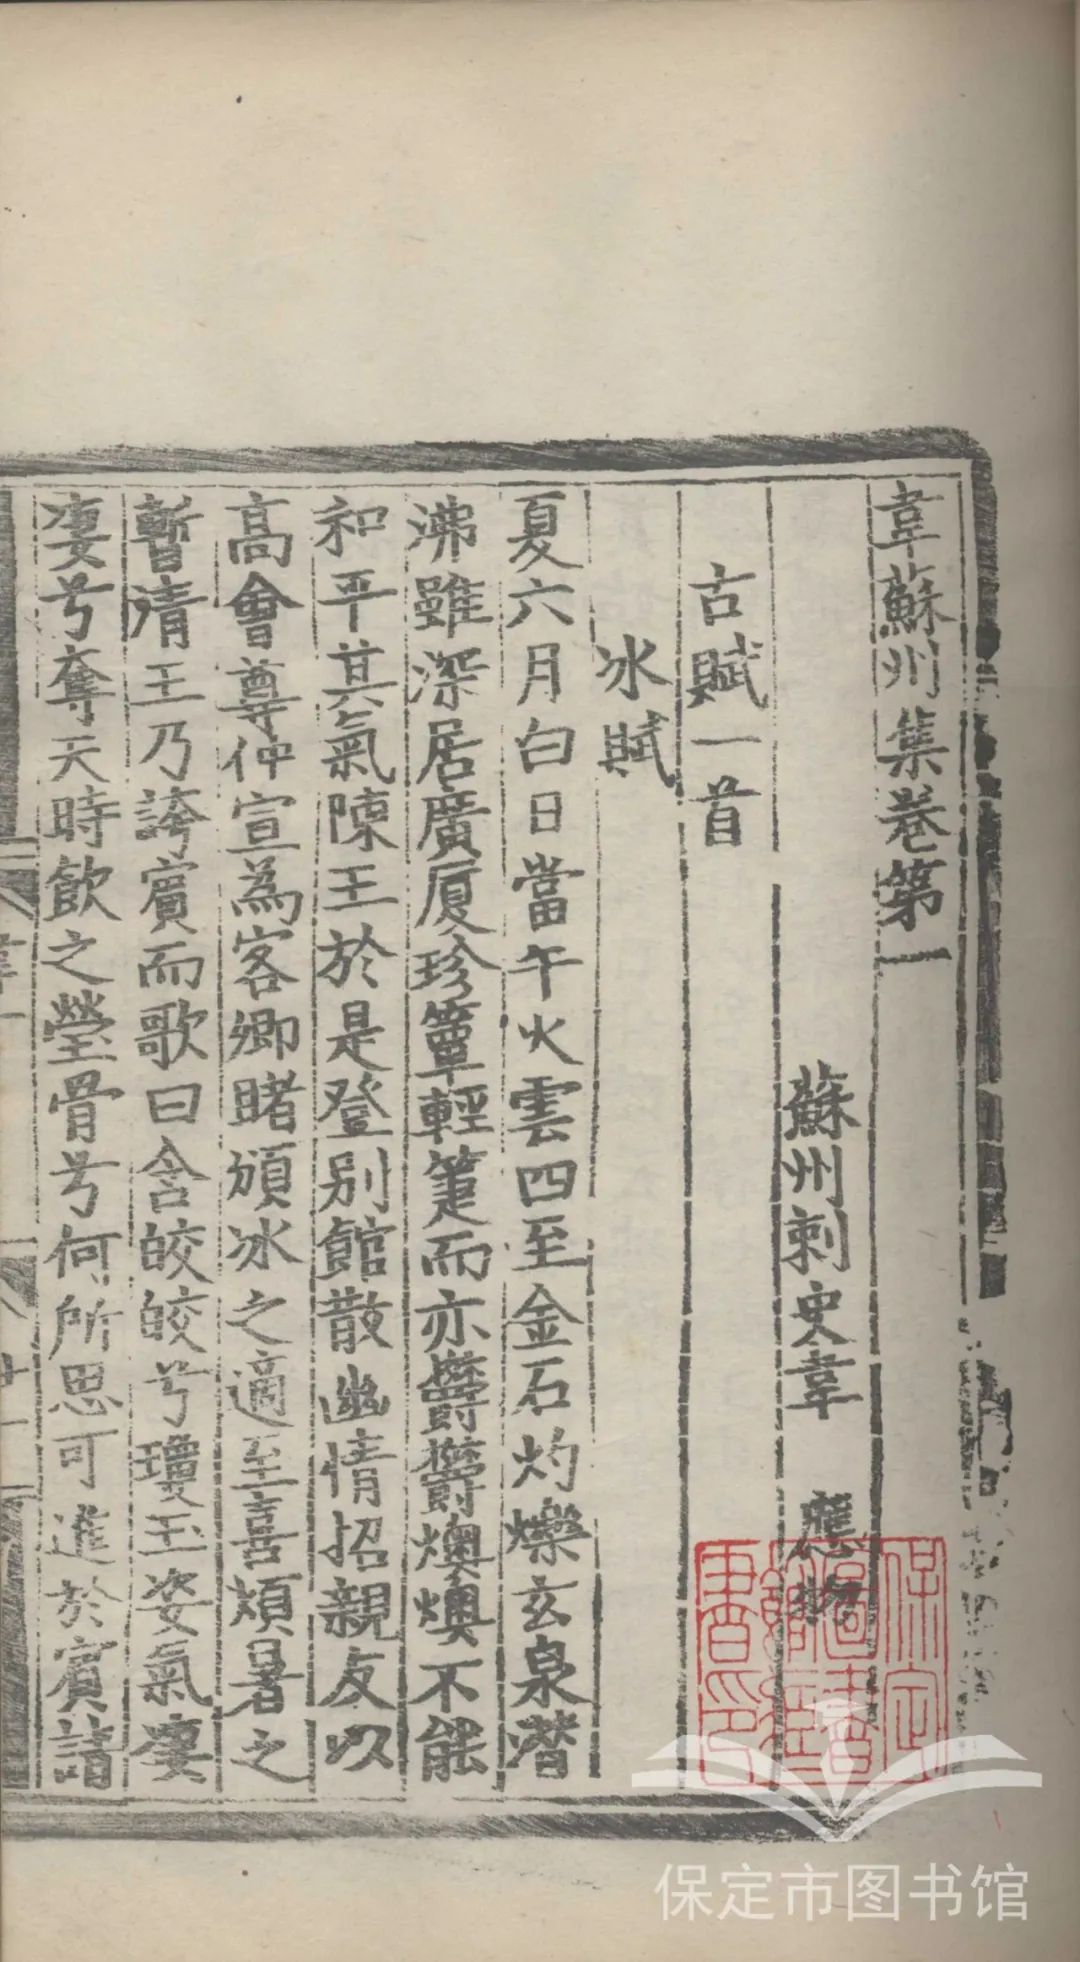 韋蘇州集卷第一
蘇州刺史韋 應物
古賦一首
冰賦
夏六月白日當午火雲四至金石灼爍玄泉潛
沸雖深居廣厦珍簟輕箑而亦欝欝燠燠不能
和平其氣陳王於是登別館散幽情招親友以
高會尊仲宣為客卿睹頒冰之適至喜煩暑之
暫清王乃誇賓而歌曰含皎皎兮瓊玉姿氣凄
凄兮奪天時飲之瑩骨兮何所思可進於賓諸
保定
圖書
館
書印
保定市图书馆